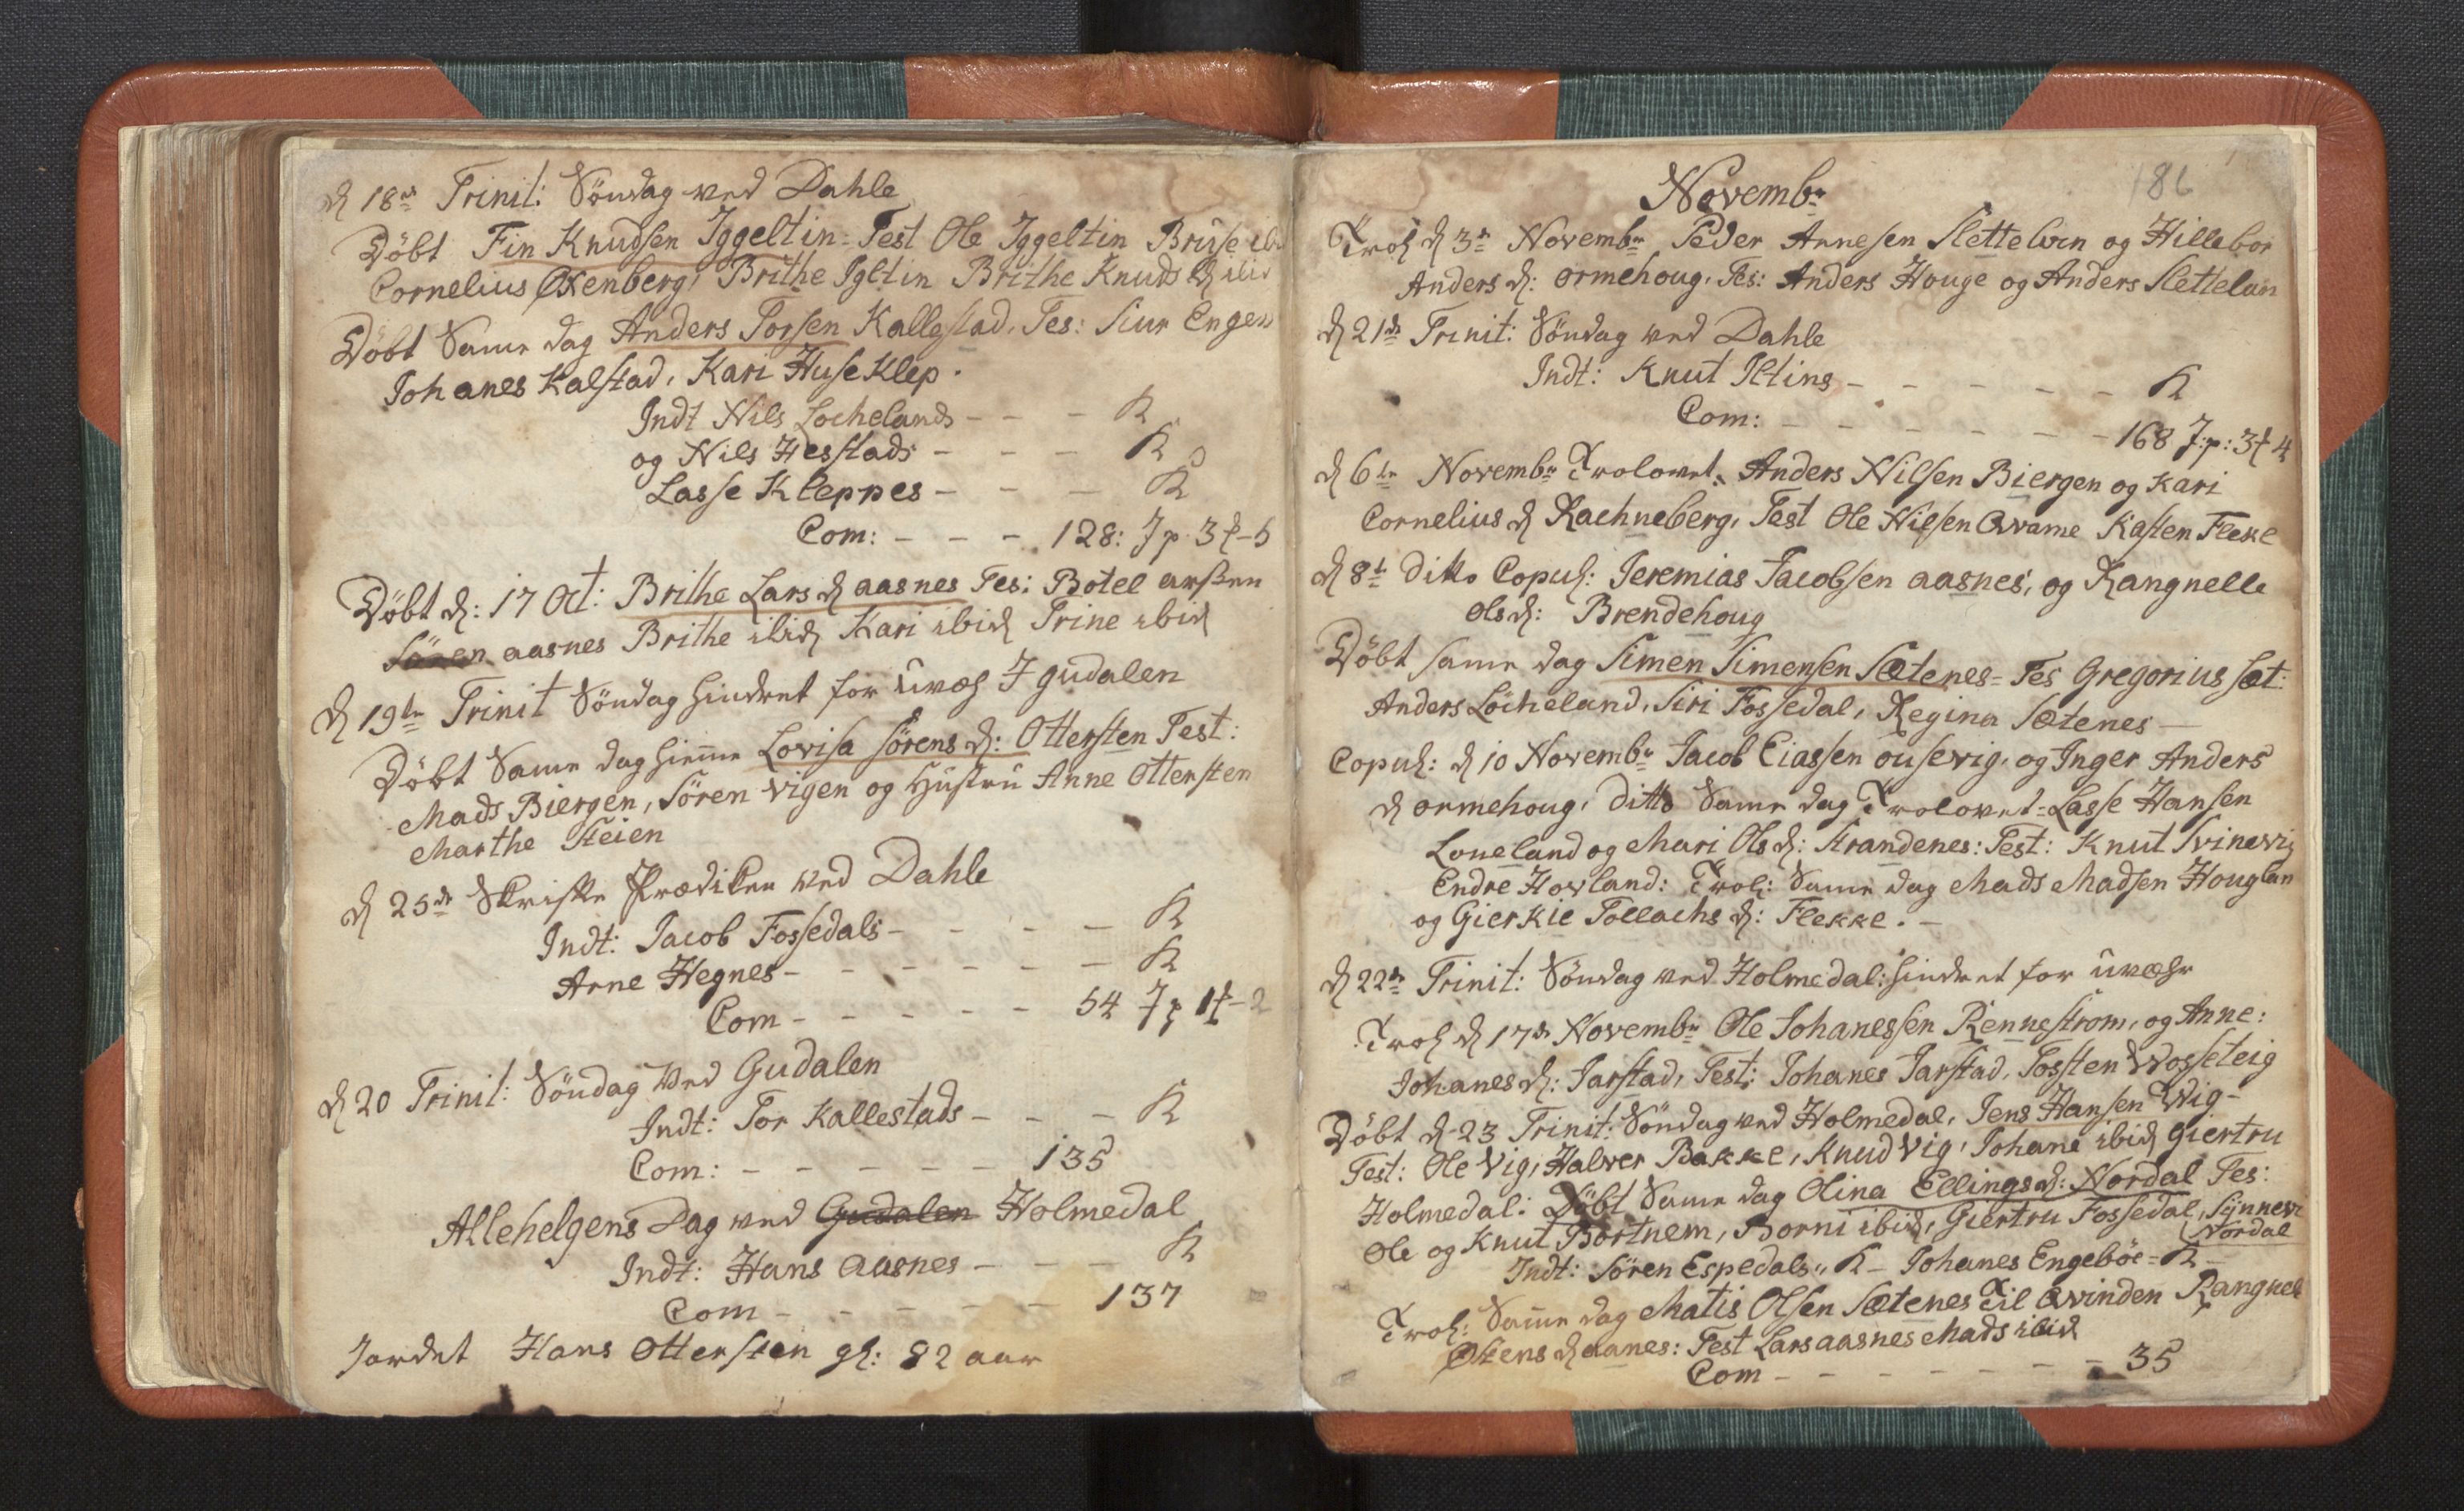 d 18de Trinit: Söndag ved Dahle
Döbt Fin Knudsen Iggeltin = Test Ole Iggeltin Brüse ibi
Cornelius Øxenberg, Brithe Igltin Brithe Knuds d ibid
Döbt Same dag Anders Torsen Kallestad, Tes: Siur Engen
Johanes Kalstad, Kari Huseklep.
Indt Nils Lochelands - - - K
og Nils Hesstads - - - K
Lasse Kleppes - - - K
Com: - - - 128: J p 3 f - 5
Döbt d: 17 Oct: Brithe Lars d aasnes Tes: Botel
Sören aasnes Brithe ibid Kari ibid Trine ibid
d 19de Trinit Söndag hindret for üvæhr I gudalen
Döbt Same dag hieme Lovisa sörens d: Ottersten Test:
Mads Biergen, Sören Vigen og Hüstru Anne Ottersten
Marthe Steien
d 25de Skrifte Prædiken ved Dahle
Indt: Jacob Fossedals - - - - K
Arne Hegnes - - - - - - K
Com - - - - - 54 J p 1 f - 2
d 20 Trinit: Söndag ved Gudalen
Indt: Tor Kallestads - - - K
Com: - - - - - - 135
Allehelgens Dag ved Gudalen Holmedal
Indt: Hans Aasnes - - - K
Com - - - - - - 137
Jordet Hans Ottersten gl: 82 aar
186
Novembr
Trol d 3de Novembr Peder Arnesen Slettelven og Hillebor
Anders d: ormehoug, Tes: Anders Houge og Anders Slettelun
d 21de Trinit: Söndag ved Dahle
Indt: Knut Iltins - - - - - - K
Com: - - - - - - - 168 J:p: 3 f 4
d 6te Novembr Trolovet, Anders Nilsen Biergen og Kari
Cornelius d Rachneberg, Test Ole Nilsen Qvame Kasten Flekke
d 8de ditto Copul: Jeremias Jacobsen aasnes, og Rangnelle
Ols d: Brendehoug
Döbt same dag Simen Simensen Sætenes = Tes Gregorius Sæt:
Anders Löcheland, Siri Fossedal, Regina Sætenes -
Copul: d 10 Novembr Jacob Eiassen ousevig, og Inger Anders
d ormehoug, ditto Same dag Trolovet = Lasse Hansen
Loueland og Mari Ols d: Strandenes: Test: Knut Svinevig
Endre Hovland: Trol: Same dag Mads Madsen Houglan
og Gierkie Tollachs d: Flekke. -
d 22de Trinit: Söndag ved Holmedal: hindret for üvæhr
Trol d 17de Novembr Ole Johanessen Rennestrom, og Anne:
Johanes d: Jarstad, Test: Johanes Jarstad, Tosten Wosseteig
Döbt d 23 Trinit: Söndag ved Holmedal, Jens Hansen Wig -
Test: Ole Vig, Halver Bakke, Knud Vig, Johane ibid giertru
Holmedal: Döbt Same dag Olina Ellings d: Nordal Tes:
Ole og Knut Bortnem, Borni ibid, Giertru Fossedal, Synnevi
Nordal
Indt: Sören Espedals " K - Johanes Engeböe = K -
Trol: Same dag Matis Olsen Sætenes Til Qvinden Rangnel
d aanes: Test Lars aasnes Mads ibid
Com - - - - - - - 35